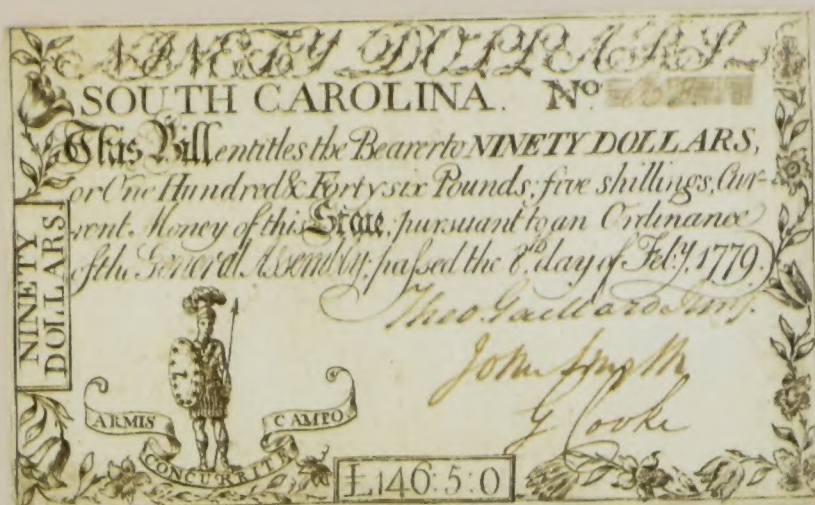 NINETY DOLLARS
SOUTH CAROLINA. No.
This Bill entitles the Bearer to NINETY DOLLARS,
or One Hundred & Forty six Pounds, five shillings, Cur-
rent Money of this State, pursuant to an Ordinance
of the General Assembly, passed the 8th. day of Feb.y, 1779.
Theo. Gaillard Junr.
John Smyth
G Cooke
NINETY
DOLLARS
ARMIS CONCURRITE CAMPO
£146:5:0